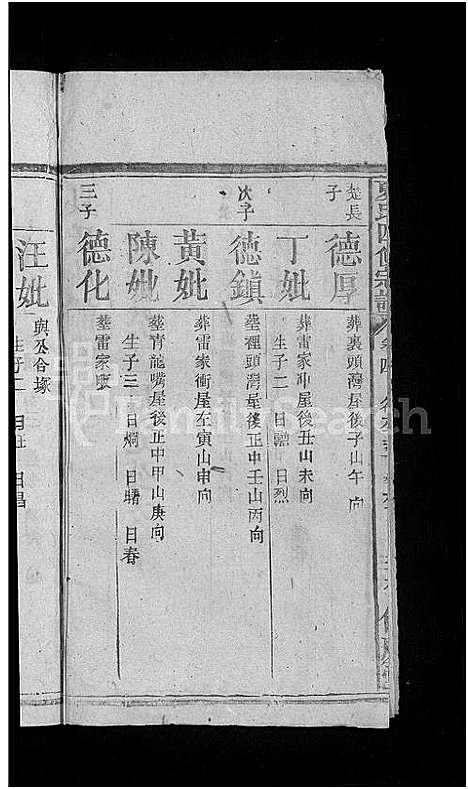 楚長子
德厚
葬裏頭灣屋後子山午向
丁妣
葬雷家冲屋後丑山未向
生子二 日勲 日烈
次子
德鎮
塟裡頭灣屋後正中壬山丙向
黃妣
葬雷家衝屋左寅山申向
陳妣
塟青龍嘴屋後正中甲山庚向
生子三 日烱 日曙 日春
三子
德化
塟雷家
汪妣
與公合塚
生子二 日 日昌
FamilySearch